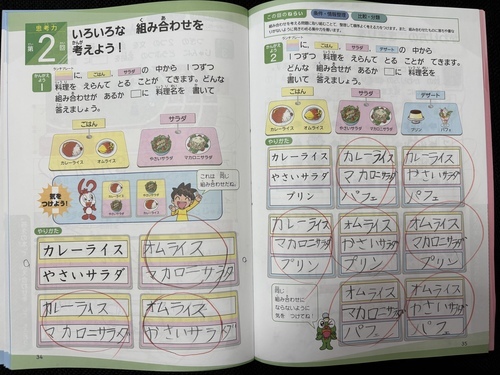 思考力
第2回
いろいろな 組み合わせを
考えよう！
かんがえよう
1
ランチプレート
に、 ごはん 、 サラダ の 中から 1つずつ
料理を えらんで とる ことが できます。どんな
組み合わせが あるか □に 料理名を 書いて
答えましょう。
ごはん
サラダ
カレーライス
オムライス
やさいサラダ
マカロニサラダ
気を
つけよう！
これは 同じ
組み合わせだね。
やりかた
カレーライス
やさいサラダ
オムライス
マカロニサラダ
カレーライス
マカロニサラダ
オムライス
やさいサラダ
34
この回のねらい
条件・情報整理
比較・分類
かんがえよう
2
ランチプレート
に、 ごはん 、 サラダ 、 デザート の
中から 1つずつ 料理を えらんで とる ことが
できます。どんな 組み合わせが あるか □に
料理名を 書いて 答えましょう。
ごはん
サラダ
デザート
カレーライス
オムライス
やさいサラダ
マカロニサラダ
プリン
パフェ
やりかた
カレーライス
やさいサラダ
プリン
カレーライス
マカロニサラダ
パフェ
カレーライス
やさいサラダ
パフェ
カレーライス
マカロニサラダ
プリン
オムライス
やさいサラダ
プリン
オムライス
マカロニサラダ
プリン
同じ
組み合わせに
ならないように
気を つけてね！
オムライス
マカロニサラダ
パフェ
オムライス
やさいサラダ
パフェ
35